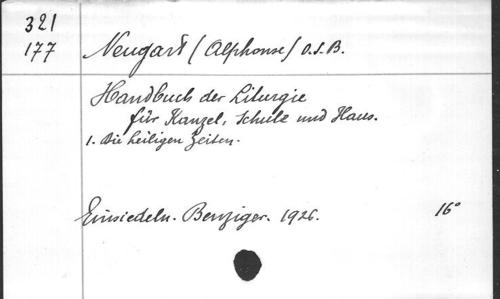 321
177
Neugart (Alphonse) O.S.B.
Handbuch der Liturgie
für Kanzel, Schule und Haus.
1. Die heiligen Zeiten.
Einsiedeln. Benziger. 1926. 16°